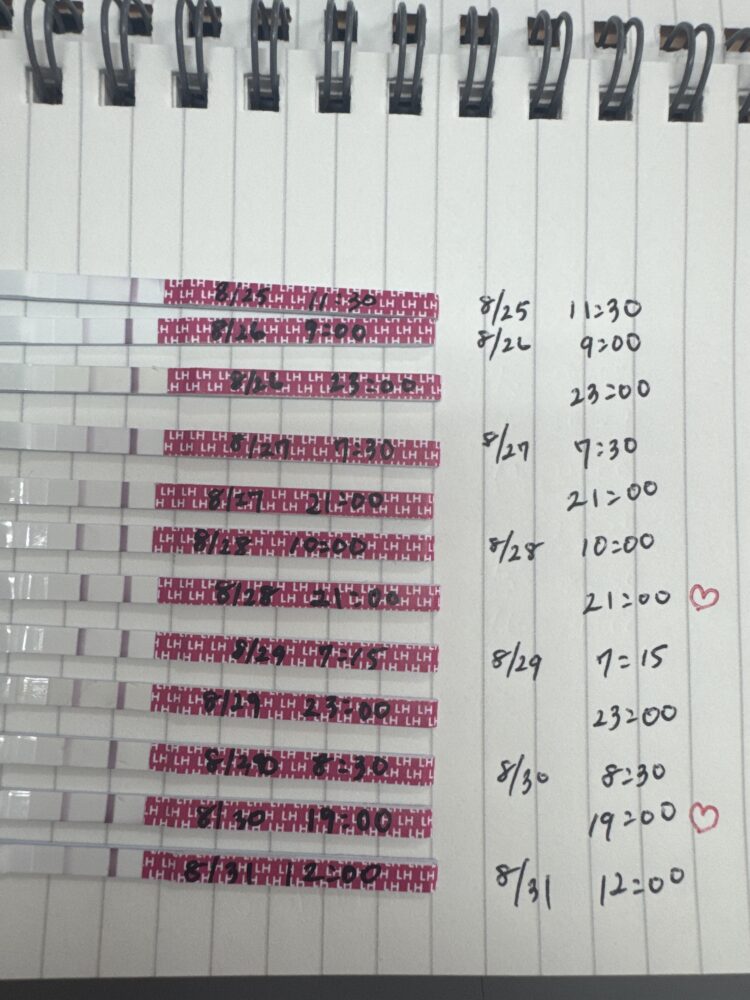 8/25 11:30 8/25 11:30
8/26 9:00 8/26 9:00
8/26 23:00 23:00
8/27 7:30 8/27 7:30
8/27 21:00 21:00
8/28 10:00 8/28 10:00
8/28 21:00 21:00 ♡
8/29 7:15 8/29 7:15
8/29 23:00 23:00
8:30 8/30 8:30
8/30 19:00 19:00 ♡
8/31 12:00 8/31 12:00